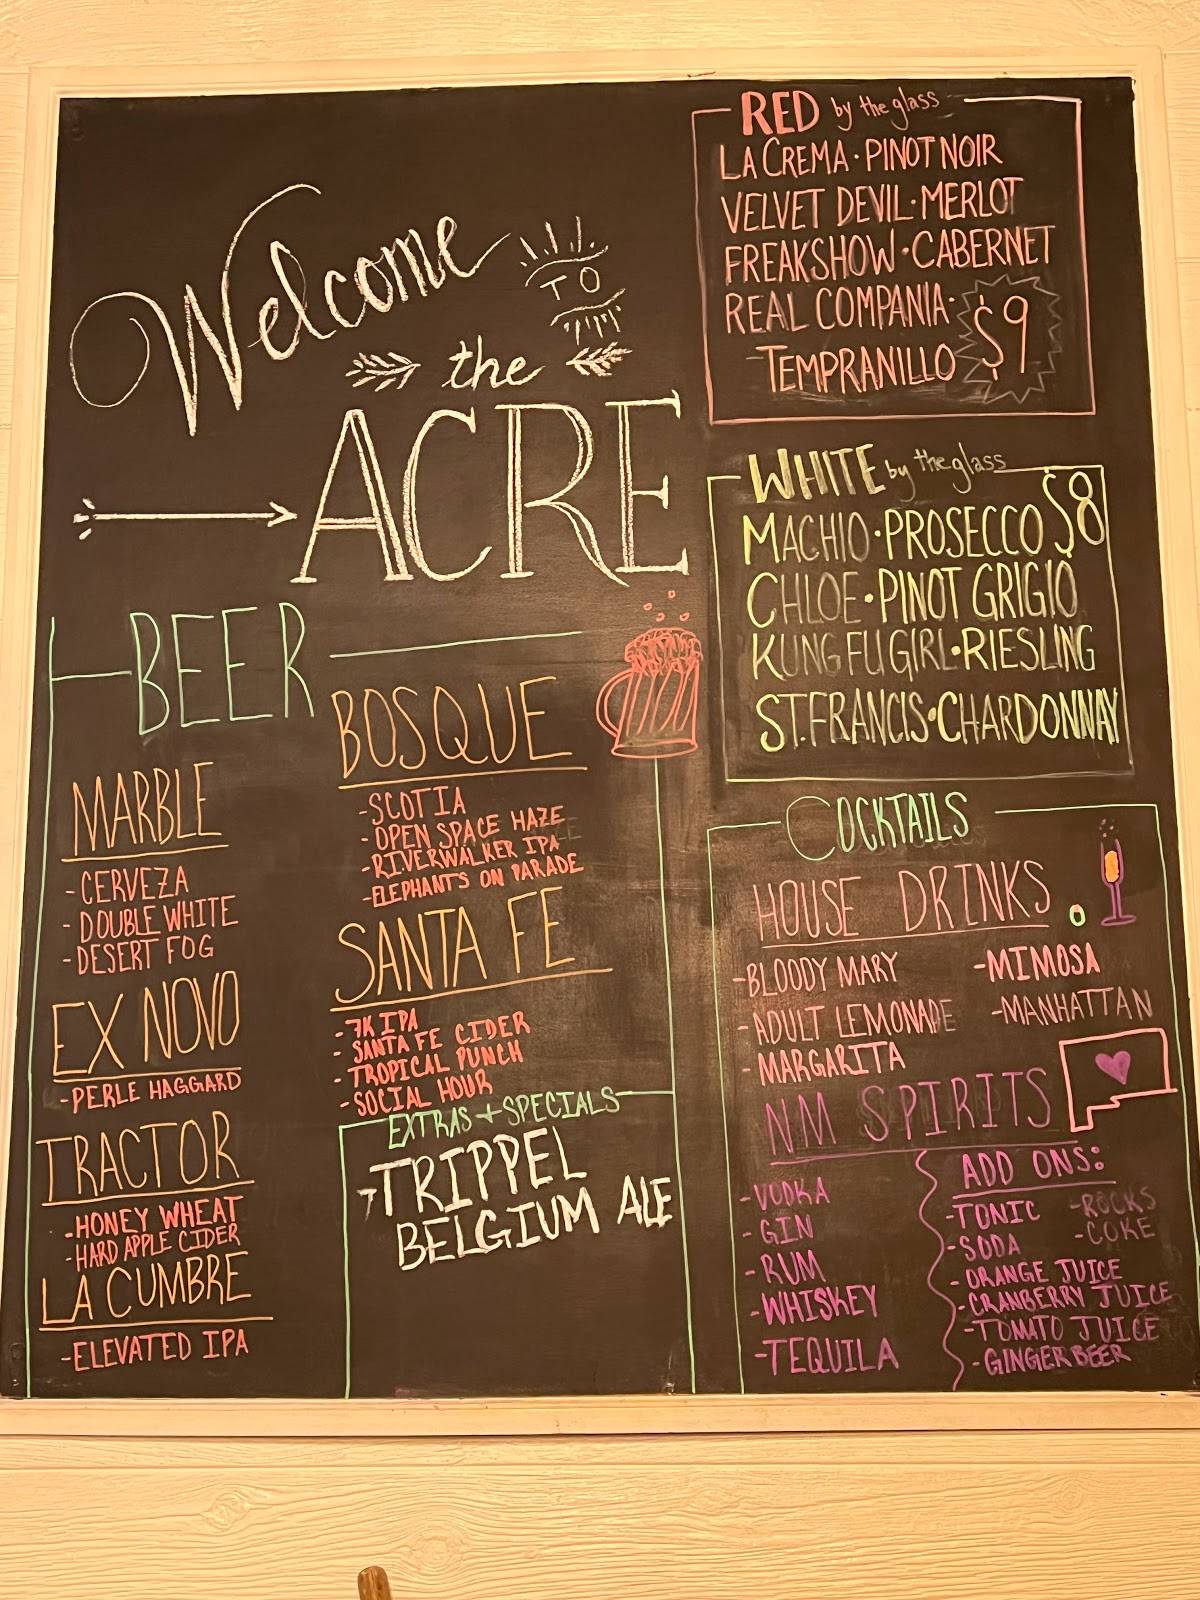 Welcome
TO
the
ACRE
BEER
MARBLE
- CERVEZA
- DOUBLE WHITE
- DESERT FOG
EX NOVO
- PERLE HAGGARD
TRACTOR
- HONEY WHEAT
- HARD APPLE CIDER
LA CUMBRE
- ELEVATED IPA
BOSQUE
- SCOTIA
- OPEN SPACE HAZE
- RIVERWALKER IPA
- ELEPHANTS ON PARADE
SANTA FE
- 7K IPA
- SANTA FE CIDER
- TROPICAL PUNCH
- SOCIAL HOUR
EXTRAS + SPECIALS
- TRIPPEL
BELGIUM ALE
RED by the glass
LA CREMA · PINOT NOIR
VELVET DEVIL · MERLOT
FREAKSHOW · CABERNET
REAL COMPANIA ·
TEMPRANILLO $9
WHITE by the glass
MACHIO · PROSECCO $8
CHLOE · PINOT GRIGIO
KUNG FU GIRL · RIESLING
ST. FRANCIS · CHARDONNAY
COCKTAILS
HOUSE DRINKS
- BLOODY MARY - MIMOSA
- ADULT LEMONADE - MANHATTAN
- MARGARITA
NM SPIRITS
- VODKA
- GIN
- RUM
- WHISKEY
- TEQUILA
ADD ONS:
- TONIC - ROCKS
- SODA - COKE
- ORANGE JUICE
- CRANBERRY JUICE
- TOMATO JUICE
- GINGER BEER